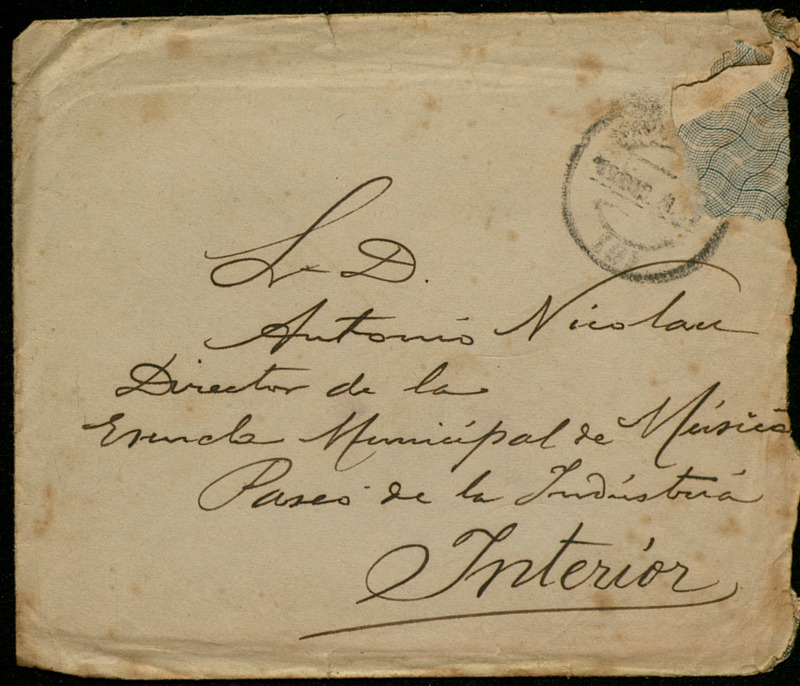 Sr D.
Antonio Nicolau
Director de la
Escuela Municipal de Música
Paseo de la Indústria
Interior